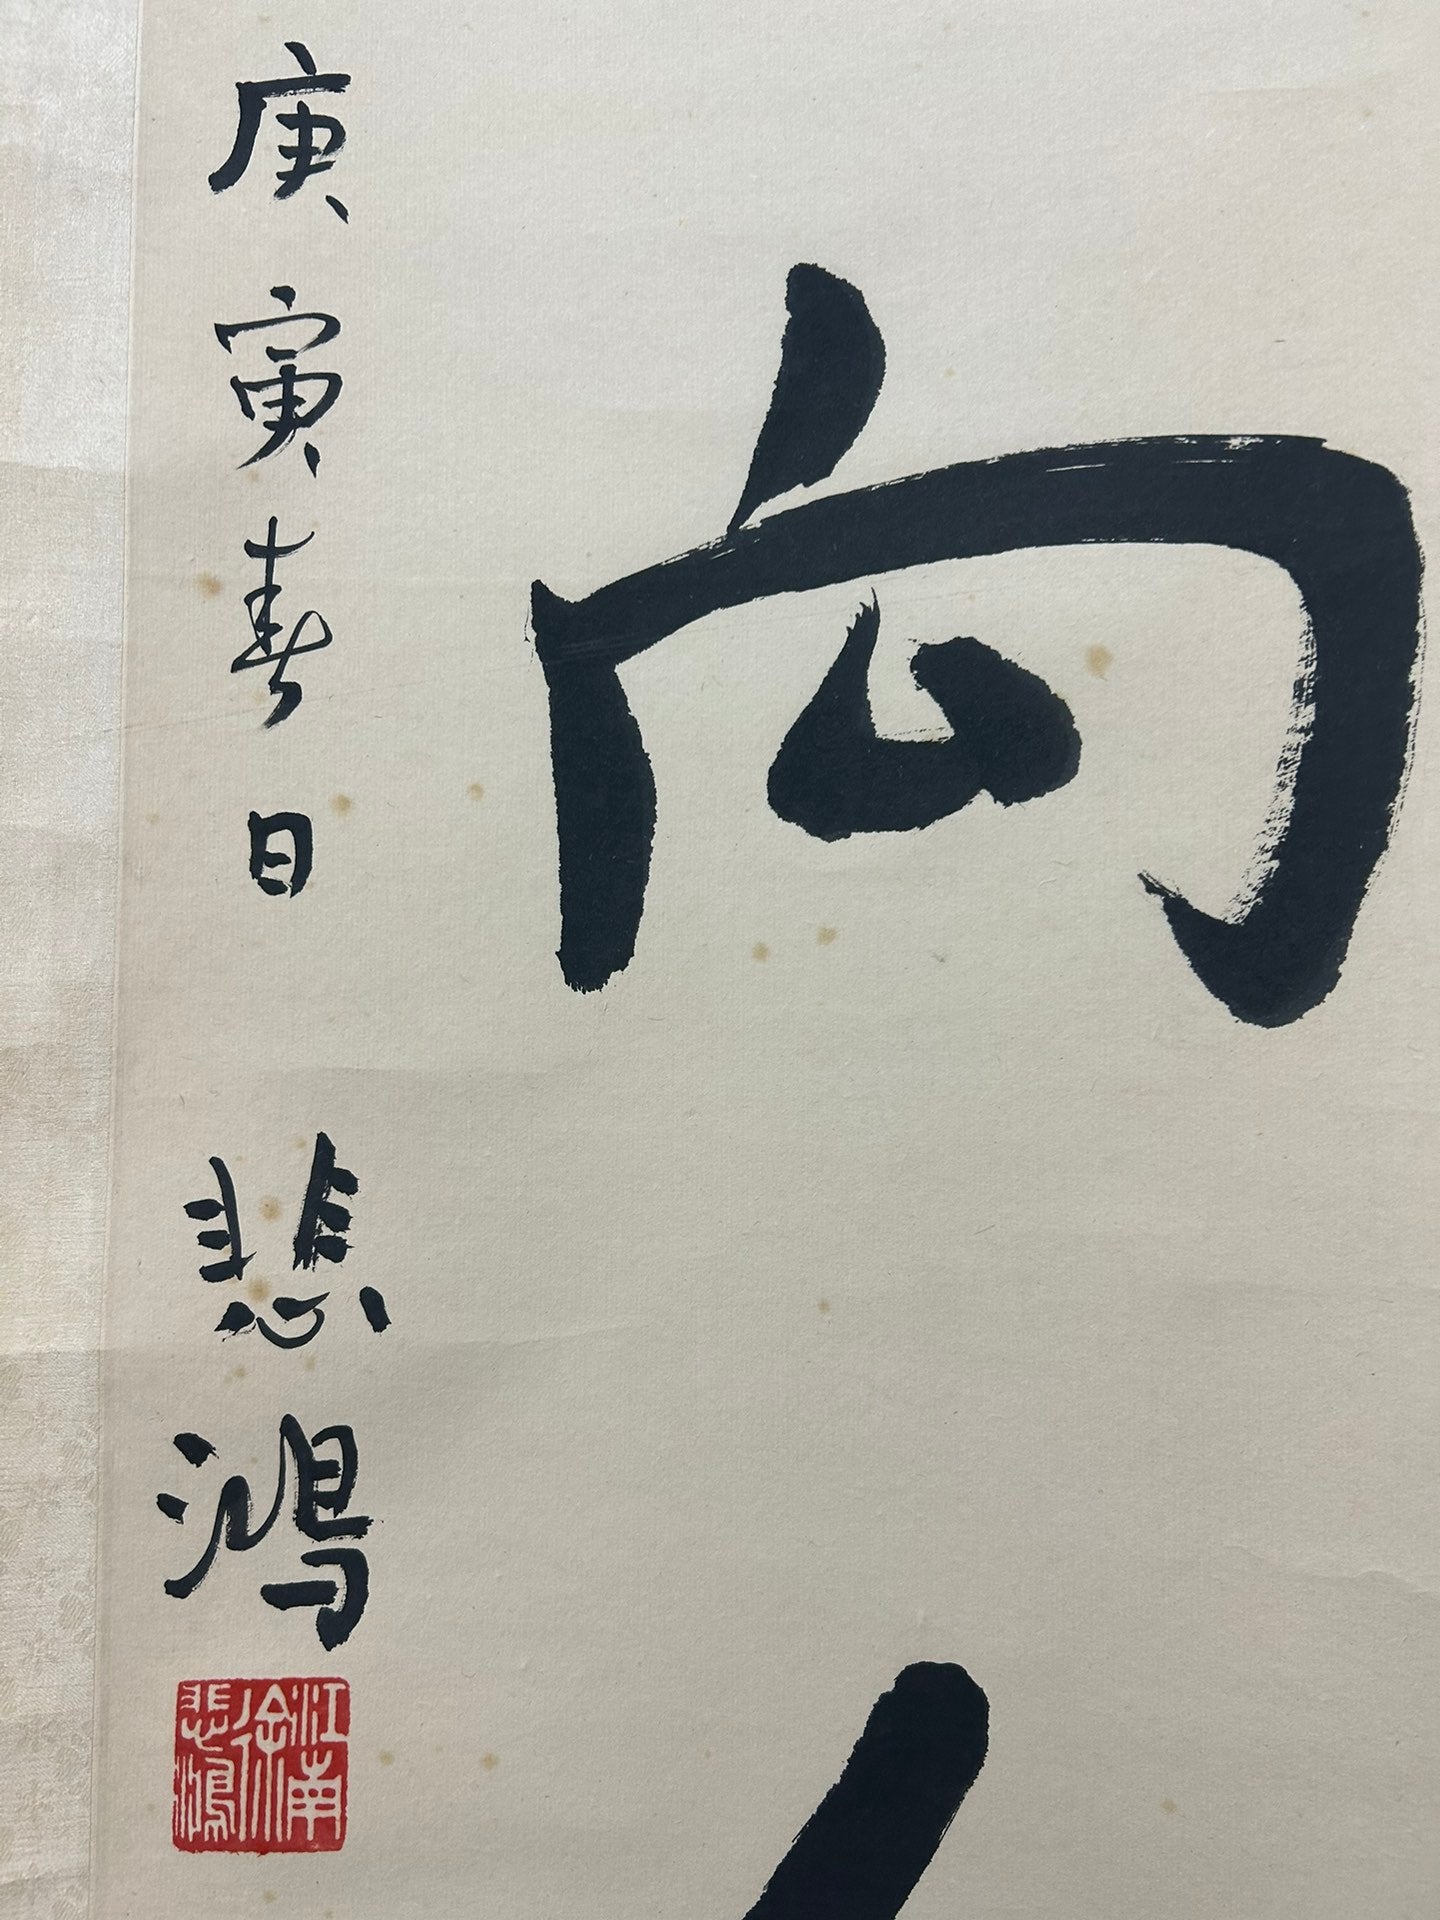 向
庚寅春日 悲鴻
江南
徐
悲鴻